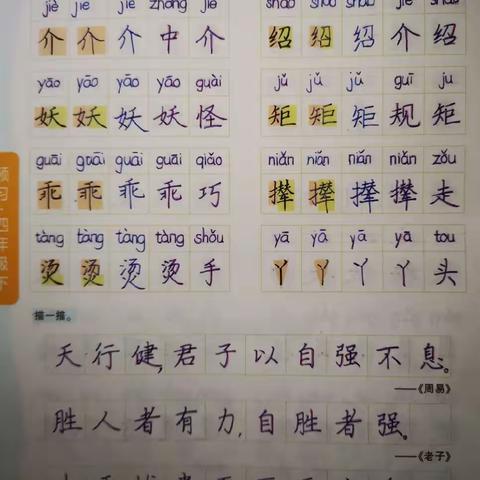 jiè jiè jiè zhōng jiè
介 介 介 中 介
shào shào shào jiè shào
绍 绍 绍 介 绍
yāo yāo yāo yāo guài
妖 妖 妖 妖 怪
jǔ jǔ jǔ guī ju
矩 矩 矩 规 矩
guāi guāi guāi guāi qiǎo
乖 乖 乖 乖 巧
niǎn niǎn niǎn niǎn zǒu
撵 撵 撵 撵 走
tàng tàng tàng tàng shǒu
烫 烫 烫 烫 手
yā yā yā yā tou
丫 丫 丫 丫 头
预习·四年级下
描一描。
天行健,君子以自强不息。
——《周易》
胜人者有力,自胜者强。
——《老子》